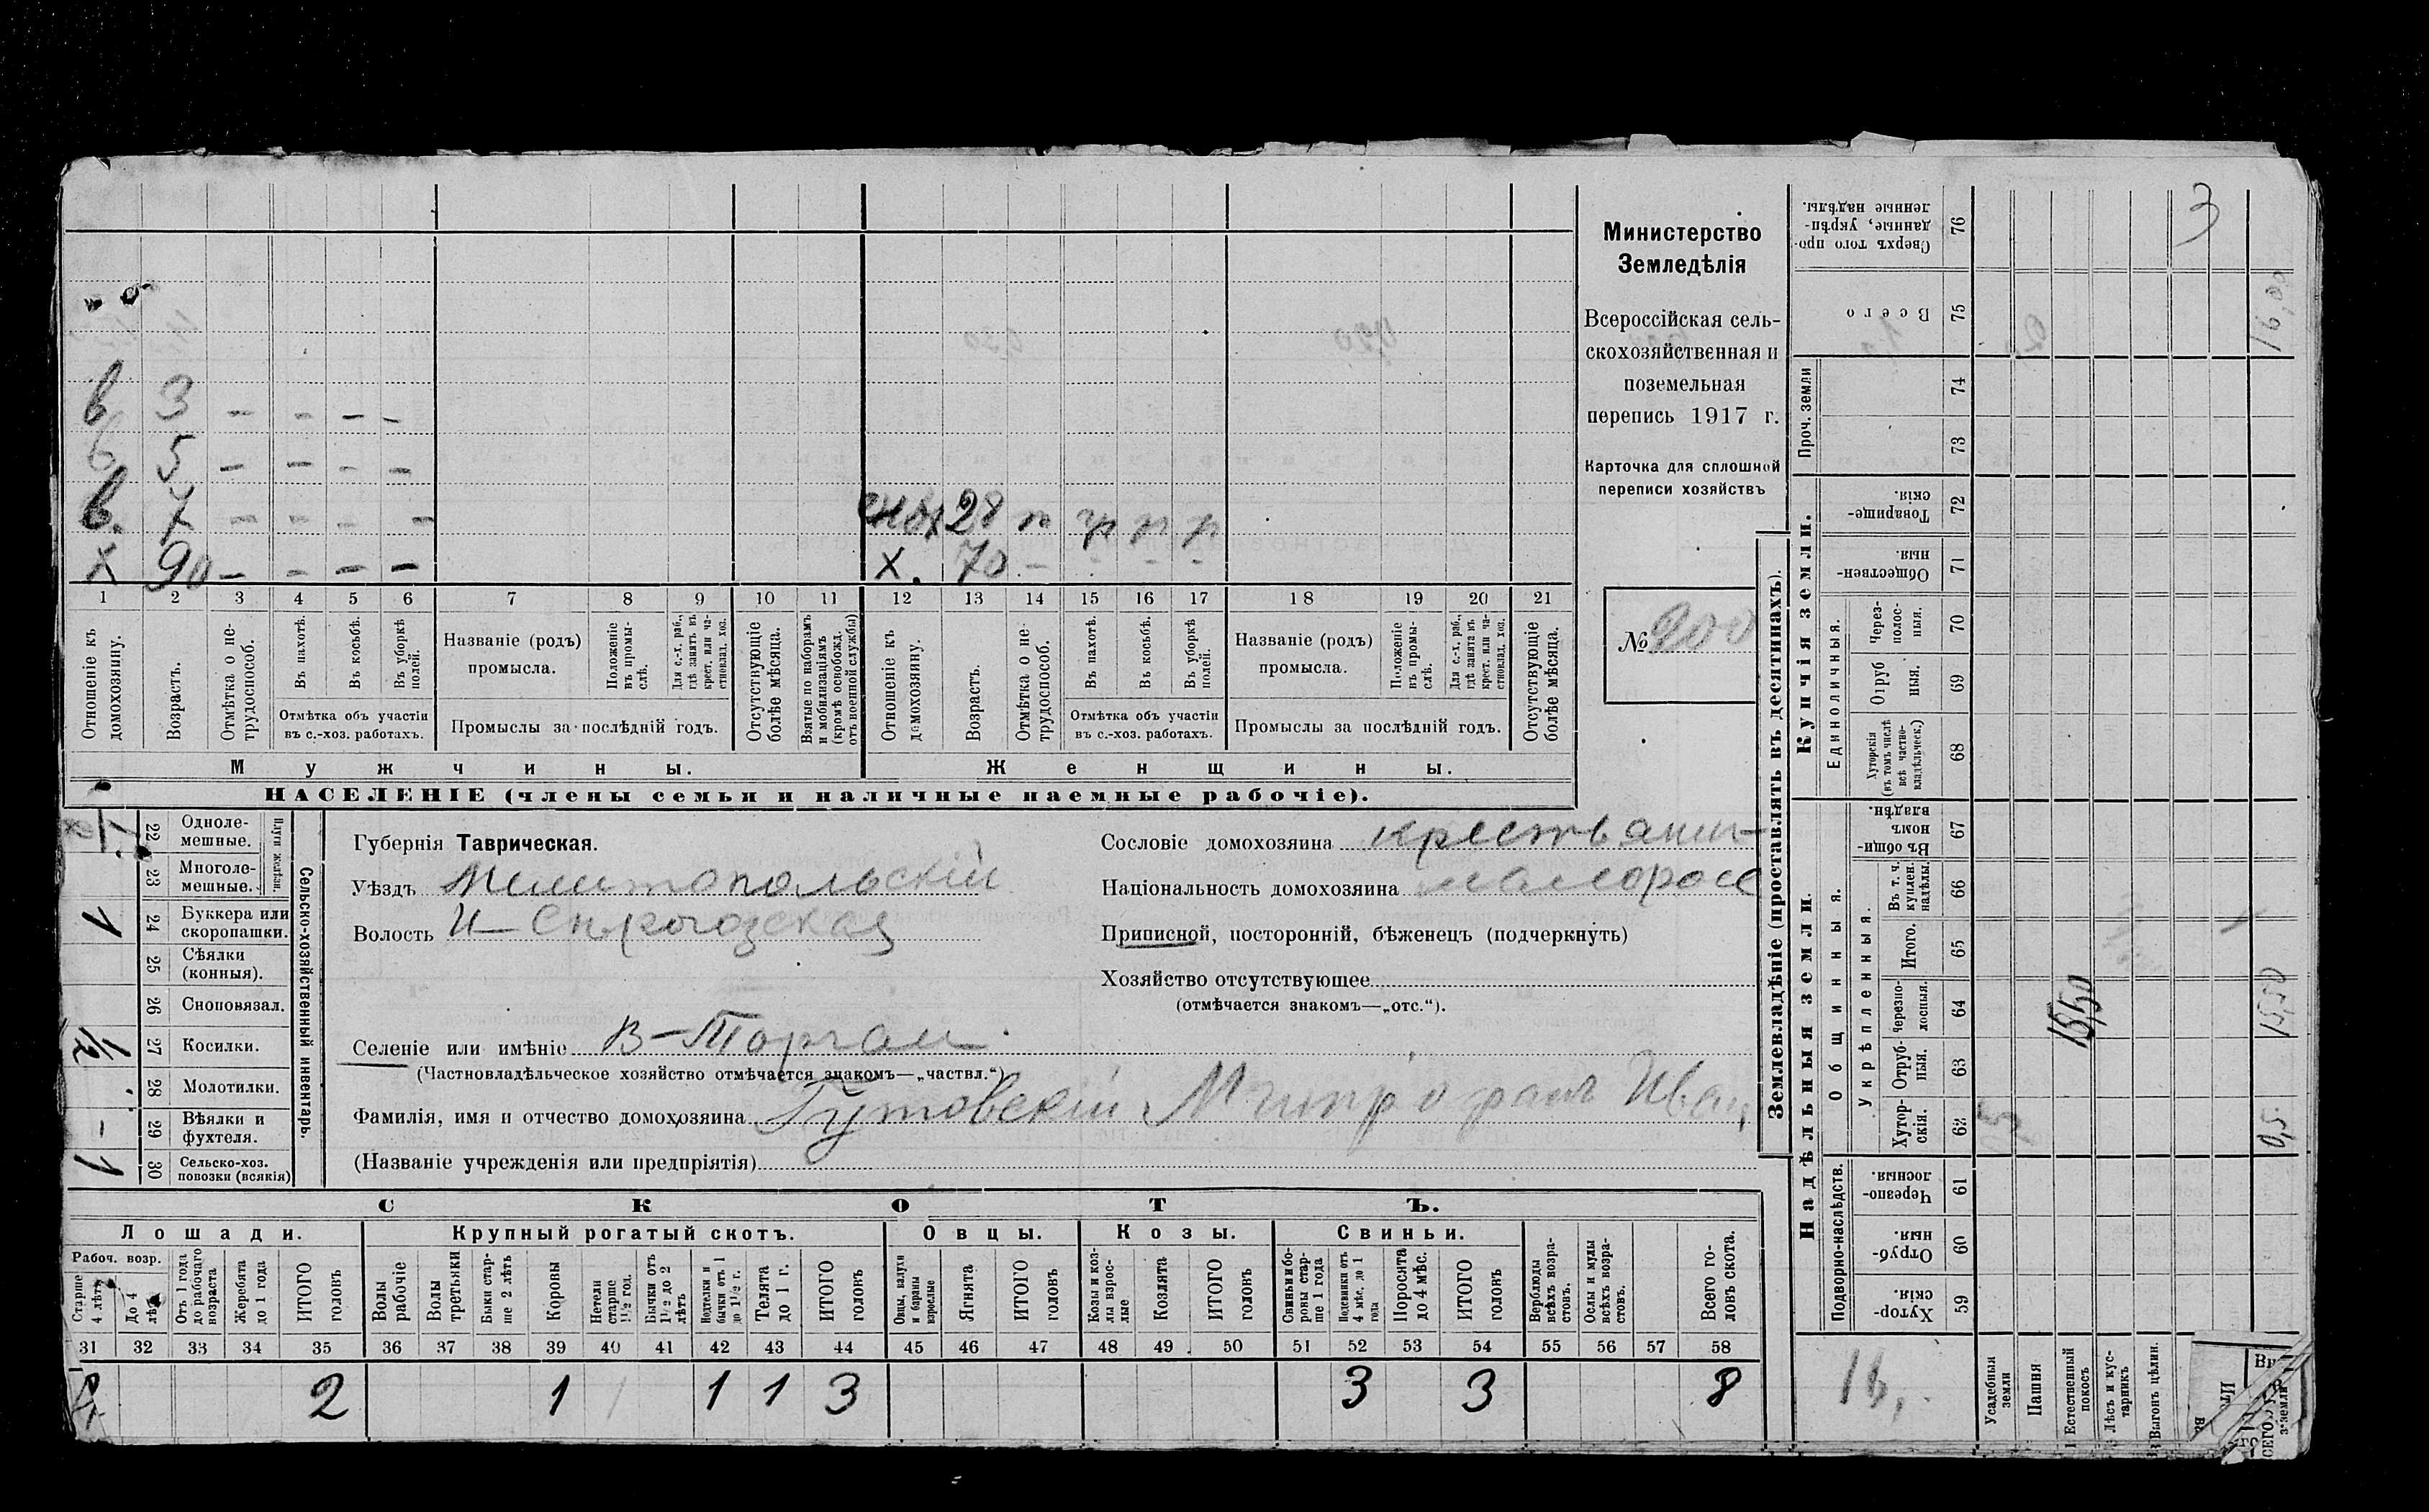 Министерство
Земледѣлія
Всероссійская сель-
скохозяйственная и
поземельная
перепись 1917 г.
Карточка для сплошной
переписи хозяйствъ
№ 900
в 3 - - - -
в 5 - - - -
в. 7 - - - -
х 90 - - - -
28 п р р
х. 70 - - - -
1 2 3 4 5 6 7 8 9 10 11 12 13 14 15 16 17 18 19 20 21
Отношеніе къ домохозяину.
Возрастъ.
Отмѣтка о не-трудоспособ.
Въ пахотѣ.
Въ косьбѣ.
Въ уборкѣ полей.
Отмѣтка объ участіи
въ с.-хоз. работахъ.
Названіе (родъ)
промысла.
Положеніе въ промы-слѣ.
Для с.-х. раб., гдѣ занятъ въ крест. или ча-стновлад. хоз.
Промыслы за послѣдній годъ.
Отсутствующіе болѣе мѣсяца.
Взятые по наборамъ и мобилизаціямъ (кромѣ освобожд. отъ военной службы)
Отношеніе къ домохозяину.
Возрастъ.
Отмѣтка о не-трудоспособ.
Въ пахотѣ.
Въ косьбѣ.
Въ уборкѣ полей.
Отмѣтка объ участіи
въ с.-хоз. работахъ.
Названіе (родъ)
промысла.
Положеніе въ промы-слѣ.
Для с.-х. раб., гдѣ занята въ крест. или ча-стновлад. хоз.
Промыслы за послѣдній годъ.
Отсутствующіе болѣе мѣсяца.
Мужчины.
Женщины.
НАСЕЛЕНІЕ (члены семьи и наличные наемные рабочіе).
Сельско-хозяйственный инвентарь.
22 Одноле-мешные.
23 Многоле-мешные.
1 24 Буккера или скоропашки.
25 Сѣялки (конныя).
26 Сноповязал.
1/2 27 Косилки.
28 Молотилки.
- 29 Вѣялки и фухтеля.
1 30 Сельско-хоз. повозки (всякія)
Губернія Таврическая.
Уѣздъ Мелитопольскій
Волость Н-Сѣрогозская
Селеніе или имѣніе В-Торгаи
(Частновладѣльческое хозяйство отмѣчается знакомъ—„частвл.“)
Фамилія, имя и отчество домохозяина Гутовскій Митрофанъ Иван
(Названіе учрежденія или предпріятія)
Сословіе домохозяина крестьянин
Національность домохозяина малоросс
Приписной, посторонній, бѣженецъ (подчеркнуть)
Хозяйство отсутствующее
(отмѣчается знакомъ—„отс.“).
СКОТЪ.
Лошади. Крупный рогатый скотъ. Овцы. Козы. Свиньи.
Рабоч. возр.
Старше 4 лѣтъ
До 4 лѣтъ
Отъ 1 года до рабочаго возраста
Жеребята до 1 года
ИТОГО головъ
Волы рабочіе
Волы третьяки
Быки стар-ше 2 лѣтъ
Коровы
Нетели старше 1½ год.
Бычки отъ 1½ до 2 лѣтъ
Подтелки и бычки отъ 1 до 1½ г.
Телята до 1 г.
ИТОГО головъ
Овцы, валухи и бараны взрослые
Ягнята
ИТОГО головъ
Козы и коз-лы взрос-лые
Козлята
ИТОГО головъ
Свиньи и бо-ровы стар-ше 1 года
Подсвинки отъ 4 мѣс. до 1 года
Поросята до 4 мѣс.
ИТОГО головъ
Верблюды всѣхъ возра-стовъ.
Ослы и мулы всѣхъ возра-стовъ.
Всего го-ловъ скота.
31 32 33 34 35 36 37 38 39 40 41 42 43 44 45 46 47 48 49 50 51 52 53 54 55 56 57 58
2 1 1 1 3 3 3 8
Землевладѣніе (проставлять въ десятинахъ).
Надѣльныя земли. Купчія земли.
Подворно-наслѣдств.
Общинныя.
Укрѣпленныя.
Единоличныя.
Проч. земли
Хутор-скія. 59
Отруб-ныя. 60
Черезпо-лосныя. 61
Хутор-скія. 62
Отруб-ныя. 63
Черезпо-лосныя. 64
Итого. 65
Въ т. ч. куплен. надѣлы. 66
Въ общи-номъ владѣн. 67
Хуторскія (въ томъ числѣ всѣ частно-владѣльческ.) 68
Отруб-ныя. 69
Через-полос-ныя. 70
Обществен-ныя. 71
Товарище-скія. 72
73
74
Всего 75
Сверхъ того про-данные, укрѣп-ленные надѣлы. 76
Усадебныя земли
Пашня
Естественный покосъ
Лѣсъ и кус-тарникъ
Выгонъ
15,50
15,50
0,5
3